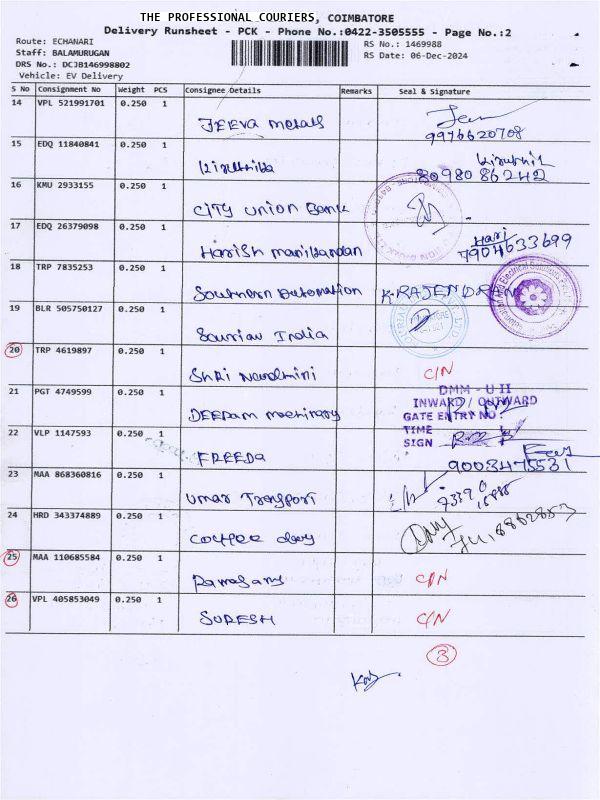 THE PROFESSIONAL COURIERS, COIMBATORE
Delivery Runsheet - PCK - Phone No.:0422-3505555 - Page No.:2
Route: ECHANARI
RS No.: 1469988
Staff: BALAMURUGAN
RS Date: 06-Dec-2024
DRS No.: DCJB146998802
Vehicle: EV Delivery
S No Consignment No Weight PCS Consignee Details Remarks Seal & Signature
14 VPL 521991701 0.250 1 JEEVA metals
9976620708
15 EDQ 11840841 0.250 1
80980 86242
16 KMU 2933155 0.250 1 CITY union Bank
17 EDQ 26379098 0.250 1 Harish manikandan Hari
7904633699
18 TRP 7835253 0.250 1 Southern Automation K.RAJENDRAN
19 BLR 505750127 0.250 1 India
20 TRP 4619897 0.250 1 Shri C/N
DMM - U II
INWARD / OUTWARD
21 PGT 4749599 0.250 1 DEEPAM machinary GATE ENTRY NO:
TIME
22 VLP 1147593 0.250 1 FREEDA SIGN
9003475531
23 MAA 868360816 0.250 1 umar Transport
24 HRD 343374889 0.250 1 coffee day
25 MAA 110685584 0.250 1 Ramasamy C/N
26 VPL 405853049 0.250 1 SURESH C/N
3